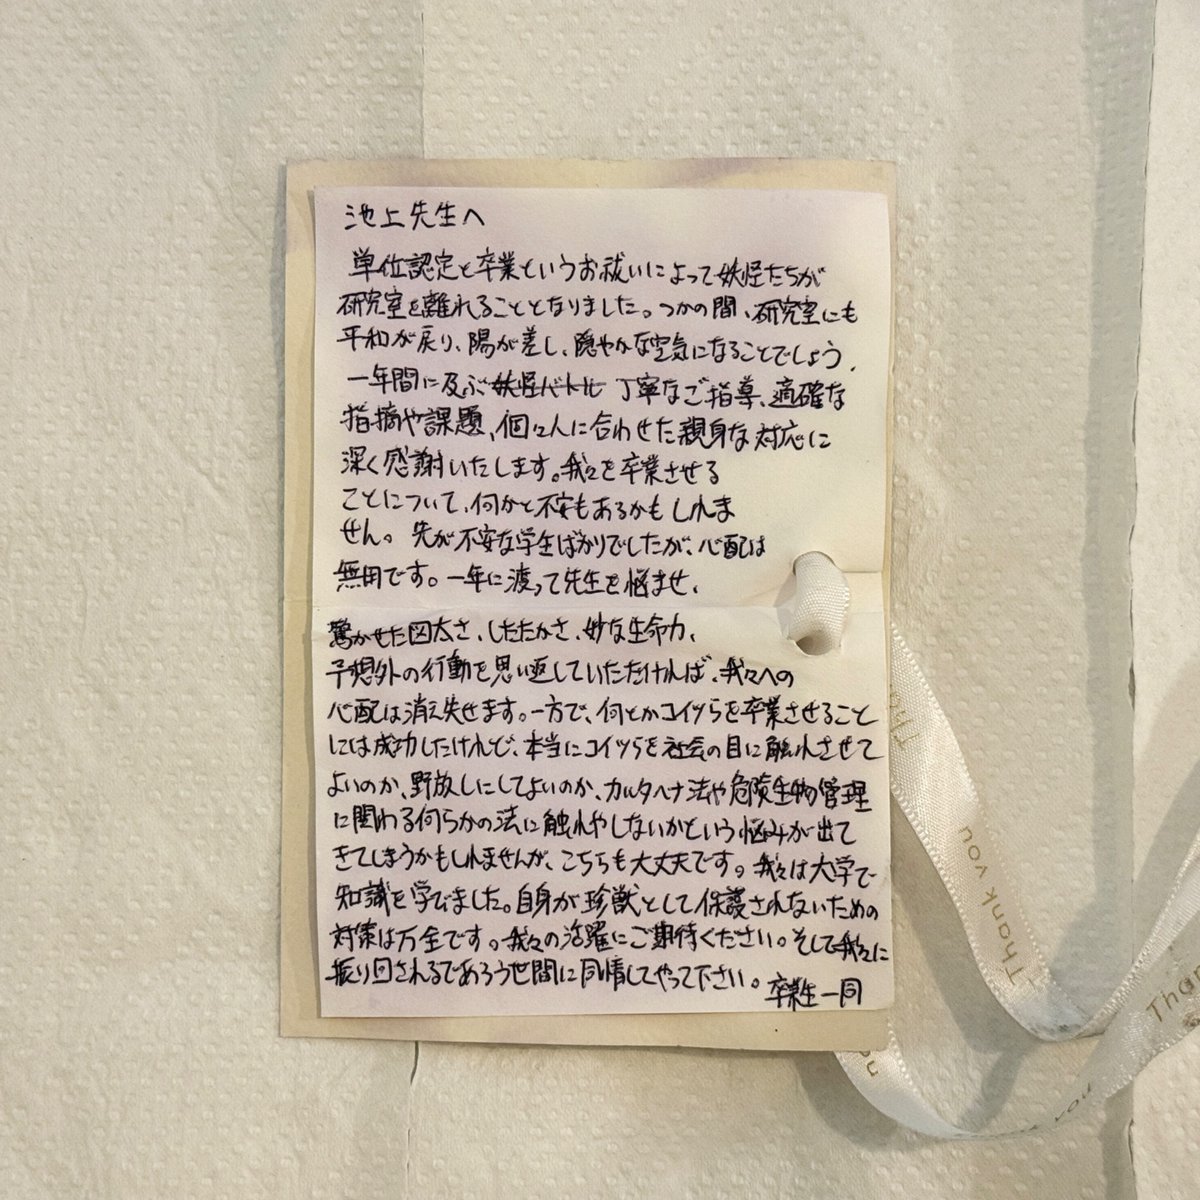 池上先生へ
単位認定と卒業というお祓いによって妖怪たちが
研究室を離れることとなりました。つかの間、研究室にも
平和が戻り、陽が差し、穏やかな空気になることでしょう。
一年間に及ぶ妖怪バトル 丁寧なご指導、適確な
指摘や課題、個々人に合わせた親身な対応に
深く感謝いたします。我々を卒業させる
ことについて、何かと不安もあるかもしれま
せん。先が不安な学生ばかりでしたが、心配は
無用です。一年に渡って先生を悩ませ、
驚かせた図太さ、したたかさ、妙な生命力、
予想外の行動を思い返していただければ、我々への
心配は消え失せます。一方で、何とかコイツらを卒業させること
には成功したけれど、本当にコイツらを社会の目に触れさせて
よいのか、野放しにしてよいのか、カルタヘナ法や危険生物管理
に関わる何らかの法に触れやしないかという悩みが出て
きてしまうかもしれませんが、こちらも大丈夫です。我々は大学で
知識を学びました。自身が珍獣として保護されないための
対策は万全です。我々の活躍にご期待ください。そして我々に
振り回されるであろう世間に同情してやって下さい。
卒業生一同
Thank you
Thank you